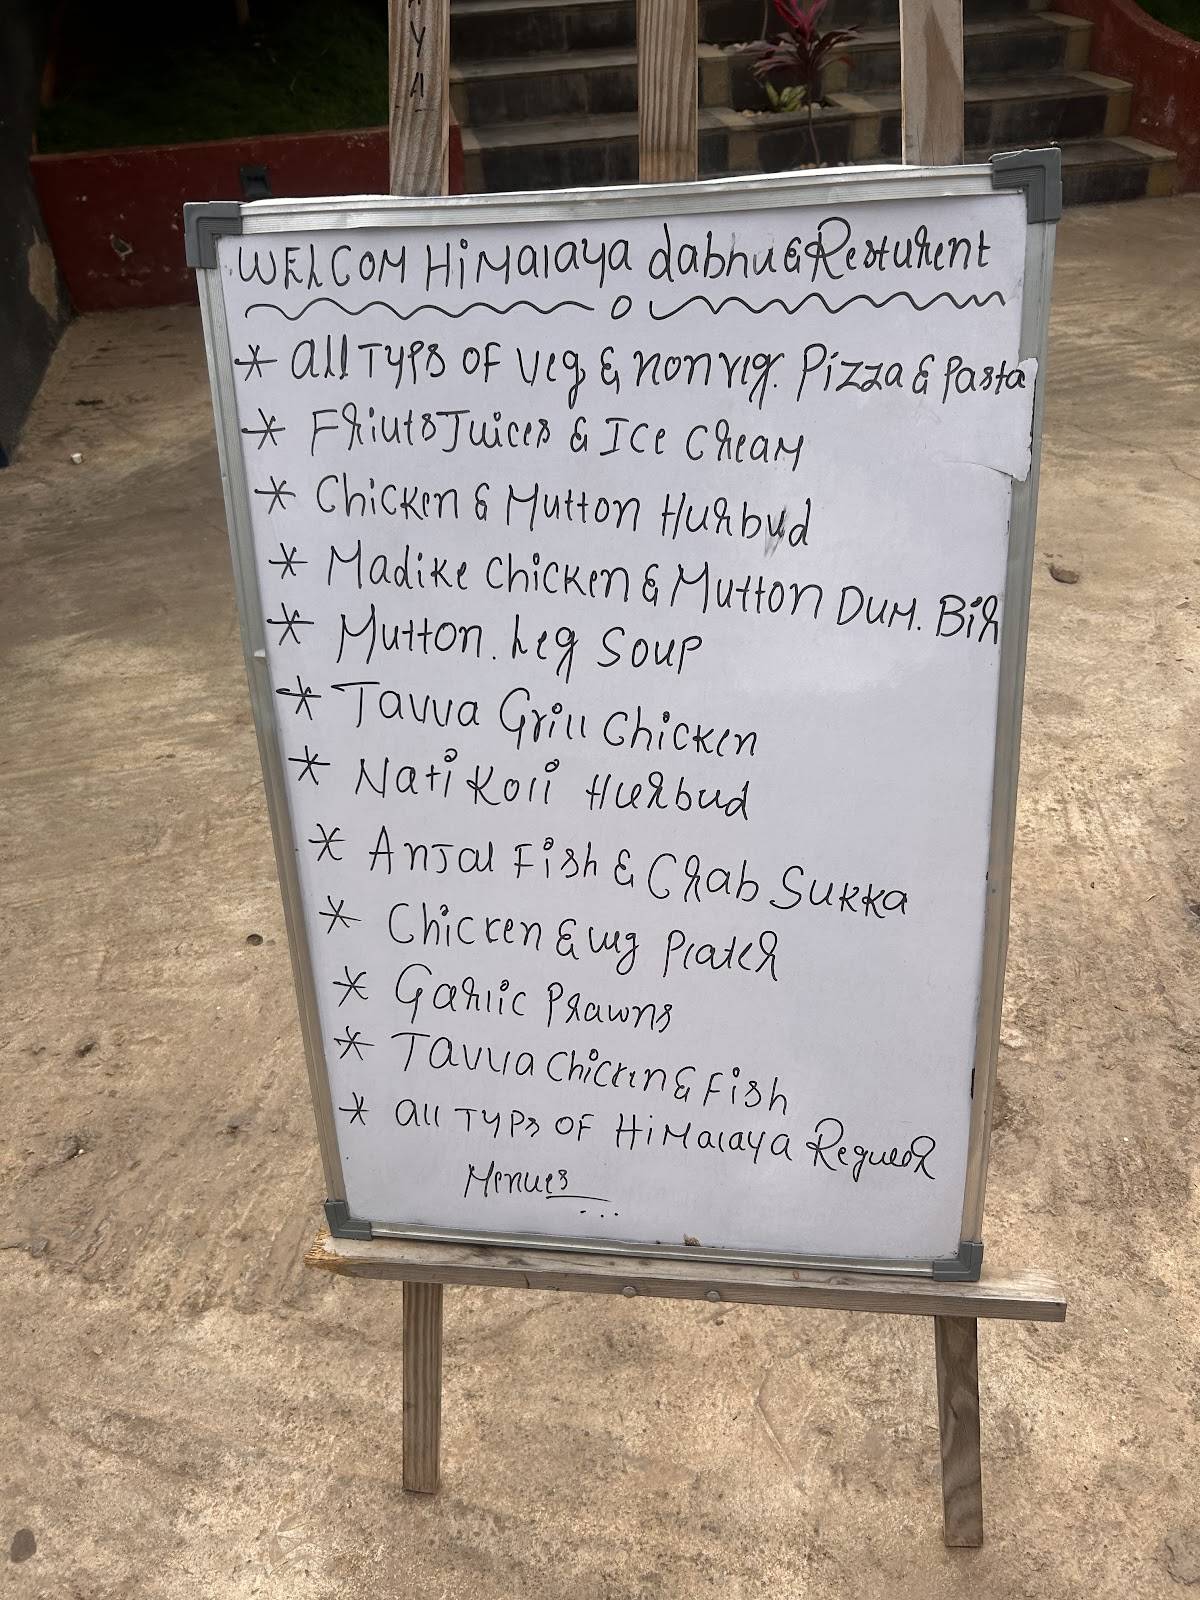 AYA
WELCOM HiMalaya dabhu & Resturent
* all Typs of veg & nonveg. Pizza & Pasta
* Friuts Juices & Ice Cream
* Chicken & Mutton Hurbud
* Madike Chicken & Mutton Dum. Bir
* Mutton. Leg Soup
* Tavva Grill Chicken
* Nati Koli Hurbud
* Anjal Fish & Crab Sukka
* Chicken & veg Plater
* Garlic Prawns
* Tavva Chicken & Fish
* all Typs OF HiMalaya Reguler
Menues
...